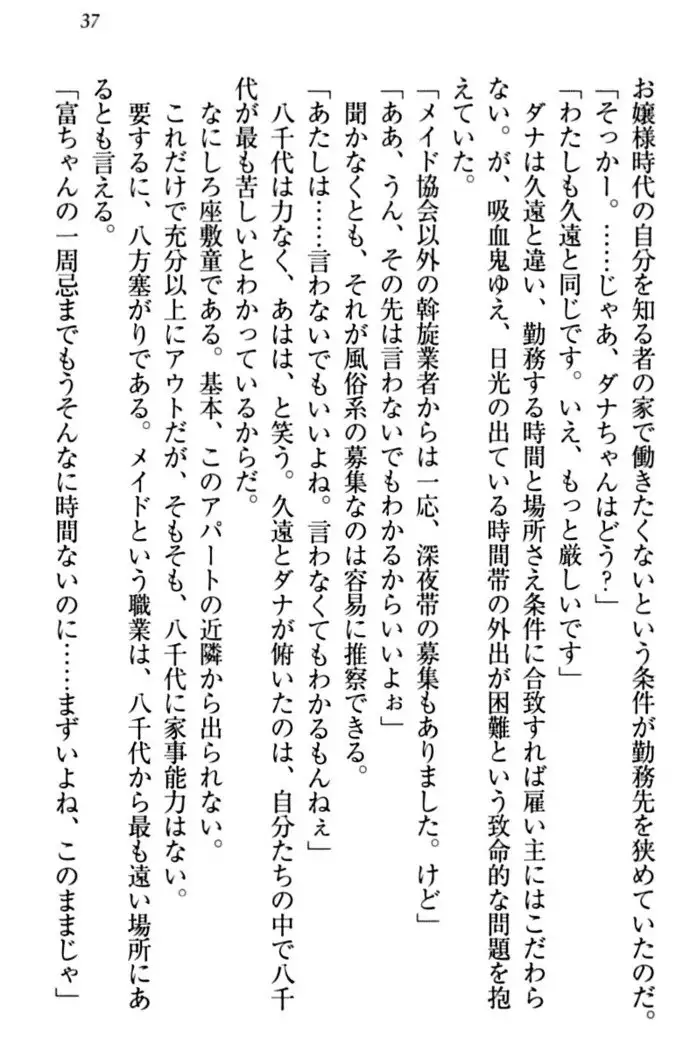 37
お嬢様時代の自分を知る者の家で働きたくないという条件が勤務先を狭めていたのだ。
「そっかー。……じゃあ、ダナちゃんはどう？」
「わたしも久遠と同じです。いえ、もっと厳しいです」
ダナは久遠と違い、勤務する時間と場所さえ条件に合致すれば雇い主にはこだわら
ない。が、吸血鬼ゆえ、日光の出ている時間帯の外出が困難という致命的な問題を抱
えていた。
「メイド協会以外の斡旋業者からは一応、深夜帯の募集もありました。けど」
「ああ、うん、その先は言わないでもわかるからいいよぉ」
聞かなくとも、それが風俗系の募集なのは容易に推察できる。
「あたしは……言わないでもいいよね。言わなくてもわかるもんねぇ」
八千代は力なく、あはは、と笑う。久遠とダナが俯いたのは、自分たちの中で八千
代が最も苦しいとわかっているからだ。
なにしろ座敷童である。基本、このアパートの近隣から出られない。
これだけで充分以上にアウトだが、そもそも、八千代に家事能力はない。
要するに、八方塞がりである。メイドという職業は、八千代から最も遠い場所にあ
るとも言える。
「富ちゃんの一周忌までもうそんなに時間ないのに……まずいよね、このままじゃ」